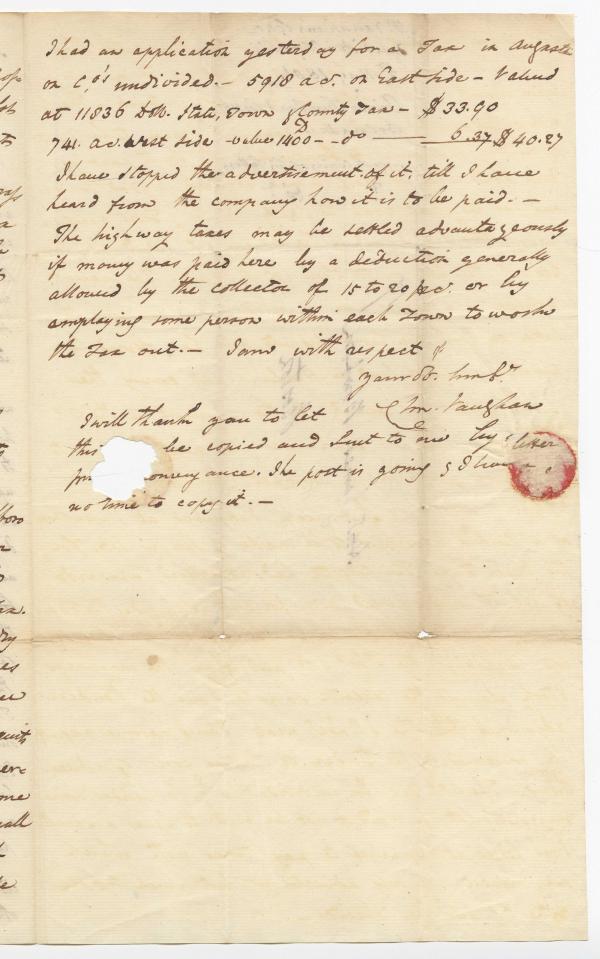 I had an application yesterday for a Tax in Augusta
on Co's undivided.- 5918 acs. on East Side - Valued
at 11836 Dolls. State, Town & County Tax - $33.90
741. ac. West Side - value 1400 - - do - 6.37 $40.27
I have stopped the advertisement of it, till I have
heard from the company how it is to be paid. -
The highway taxes may be settled advantageously
if money was paid here by a deduction generally
allowed by the collector of 15 to 20 pc. or by
employing some person within each Town to work
the Tax out. - I am with respect
your ob. humb.
Chs. Vaughan
I will thank you to let
this be copied and sent to me by letter
conveyance. The post is going & I have
no time to copy it. -